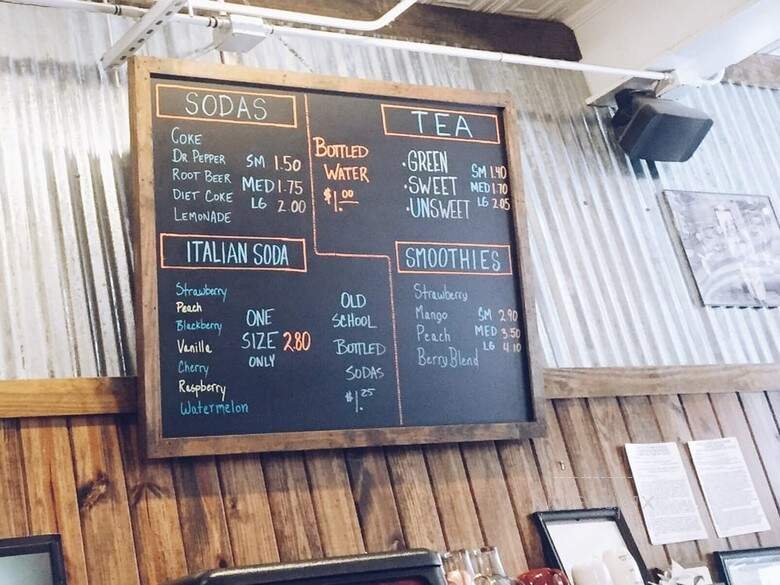 SODAS
COKE
DR PEPPER
ROOT BEER
DIET COKE
LEMONADE
SM 1.50
MED 1.75
LG 2.00
BOTTLED
WATER
$1.00
TEA
• GREEN
• SWEET
• UNSWEET
SM 1.40
MED 1.70
LG 2.05
ITALIAN SODA
Strawberry
Peach
Blackberry
Vanilla
Cherry
Raspberry
Watermelon
ONE
SIZE 2.80
ONLY
OLD
SCHOOL
BOTTLED
SODAS
$1.25
SMOOTHIES
Strawberry
Mango
Peach
Berry Blend
SM 2.90
MED 3.50
LG 4.10